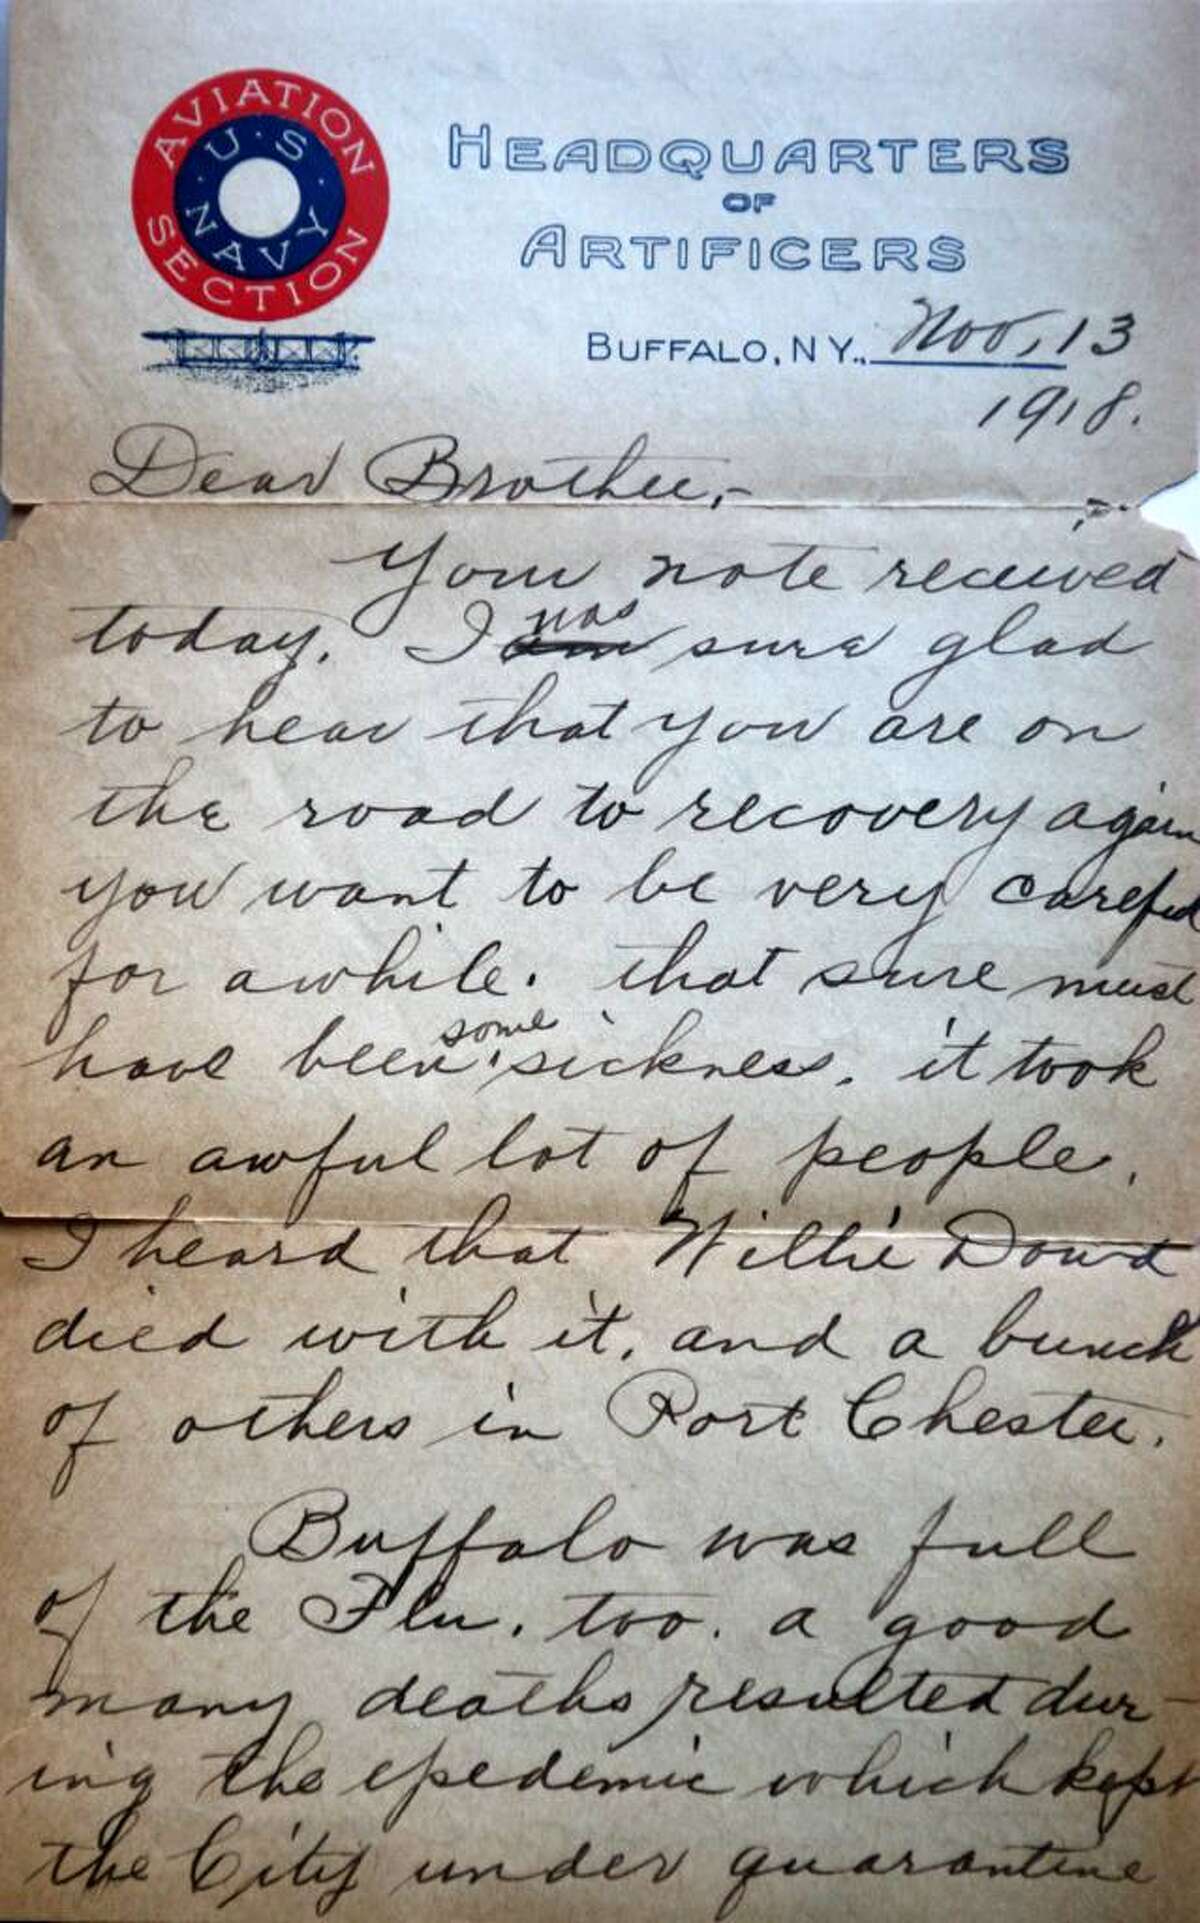 AVIATION SECTION
U·S· NAVY
HEADQUARTERS
OF
ARTIFICERS
BUFFALO, N.Y., Nov, 13
1918.
Dear Brother,-
Your note received
today. I was sure glad
to hear that you are on
the road to recovery again
you want to be very careful
for awhile. that sure must
have been some sickness. it took
an awful lot of people.
I heard that Willie Dowd
died with it, and a bunch
of others in Port Chester.
Buffalo was full
of the Flu, too. a good
many deaths resulted dur-
ing the epedemic which kept
the City under quarantine